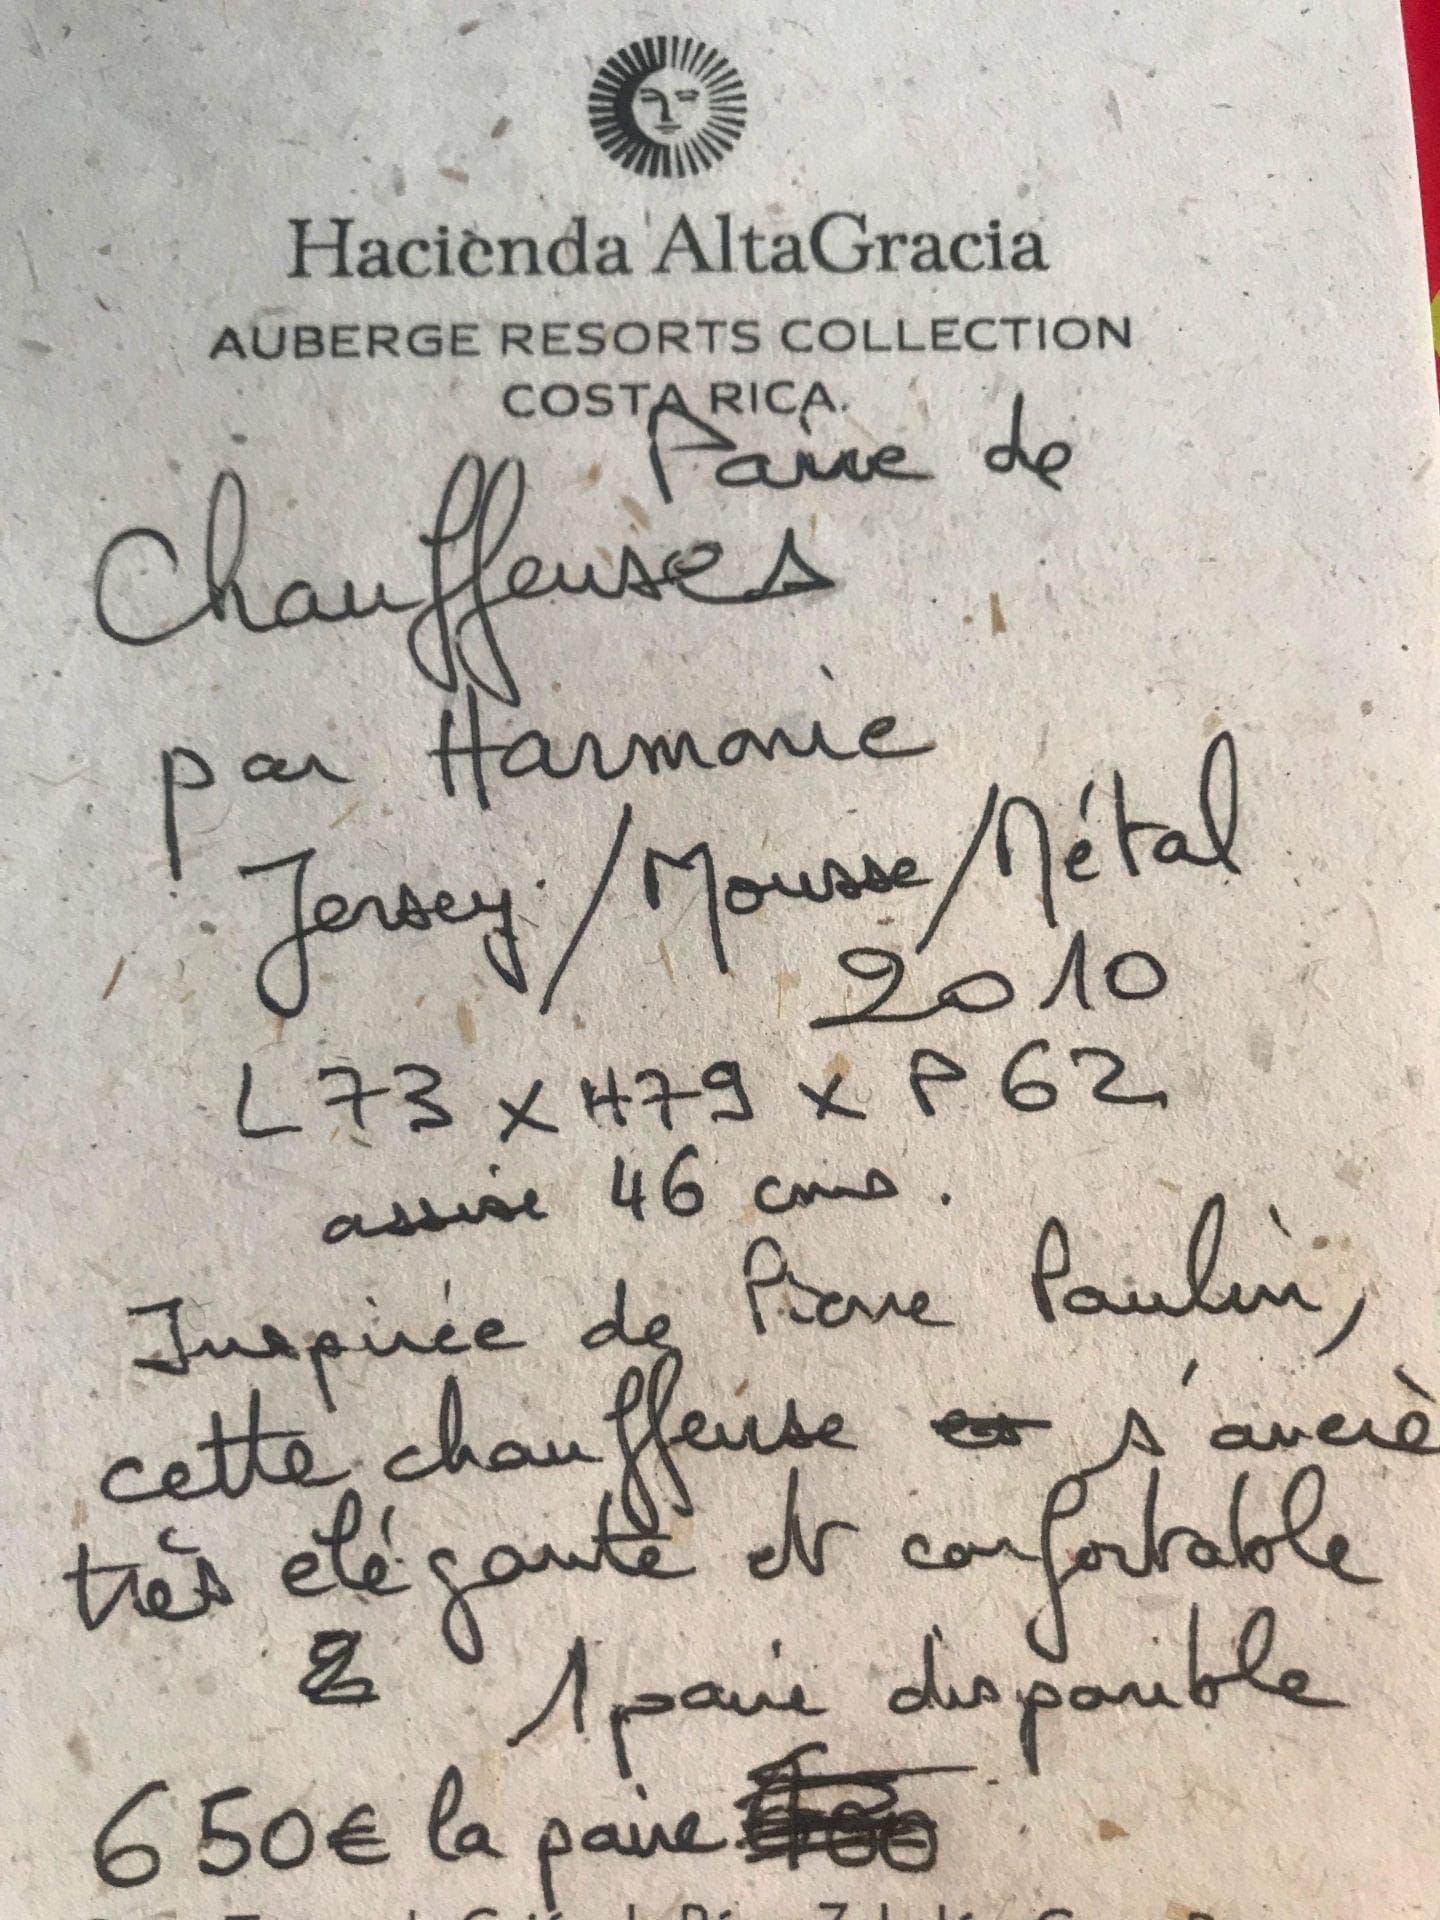 Hacienda AltaGracia
AUBERGE RESORTS COLLECTION
COSTA RICA.
Paire de
Chauffeuses
par Harmonie
Jersey / Mousse / Métal
2010
L 73 x H 79 x P 62
assise 46 cms.
Inspirée de Pierre Paulin,
cette chauffeuse s'avère
très élégante et confortable
1 paire disponible
650€ la paire